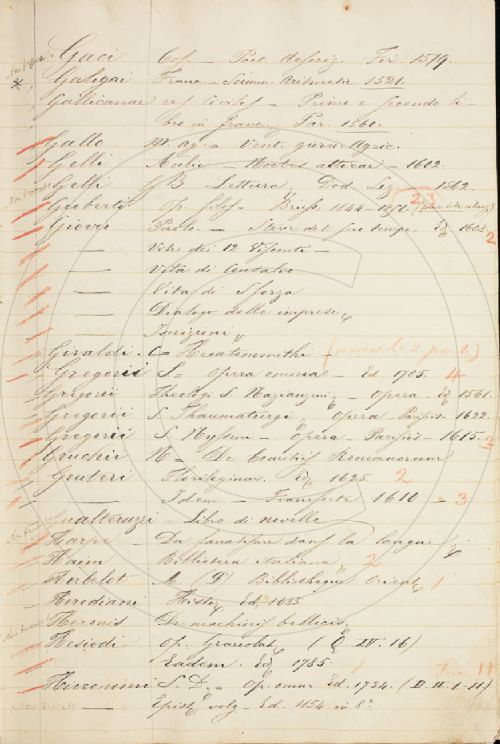 Gaci Cos. – Poet. Fir. 1579.
* Galigai Franc – Summ. Aritmetic 1521.
Gallicanae res civiles – Primo e secondo li-
bro in francez Par. 1560.
Gallo M. Ag. – Vent. giorn. Agric.
Gelli Auli – Noctes atticae – 1602.
Gelli G B Lettura Dod. Lez. – 1562.
Gioberti Op. filos – Bruss. 1844–
Giovio Paolo – Storie del suo tempo Ed 1608. 2
— Vite dei 12 Visconti –
— Vita di Consalvo
— Vita di Sforza
— Dialogo delle imprese
Iscrizioni
Giraldi. C – Hecatommithi –
Gregorii S – Opera omnia – Ed 1705. 4
Gregorii Theologi S Nazianzeni – Opera – Ed 1561.
Gregorii S Thaumaturgi Opera Parisiis – 1622.
Gregorii S. Nysseni – Opera – Parisiis – 1615. 2
Gruchii N – De Comitiis Romanorum
Gruteri Florilegium. Ed 1625 2
— Idem – 1610 = 3
Gualteruzzi – Libro di novelle
Harpe – Du fanatisme dans la langue
Haim Biblioteca italiana 2
Herbelot M (D') Bibliotheque Orient 1
Herodiani Histor. Ed.
Heronis De machinis bellicis
Hesiodi Op. Graecolat. (Q IV. 16)
Eadem. Ed 1785 11
Hieronimi S. D. – Op. omn. Ed. 1734. (D. II. 1-11)
— Epist volg – Ed. 1854 in 8°.